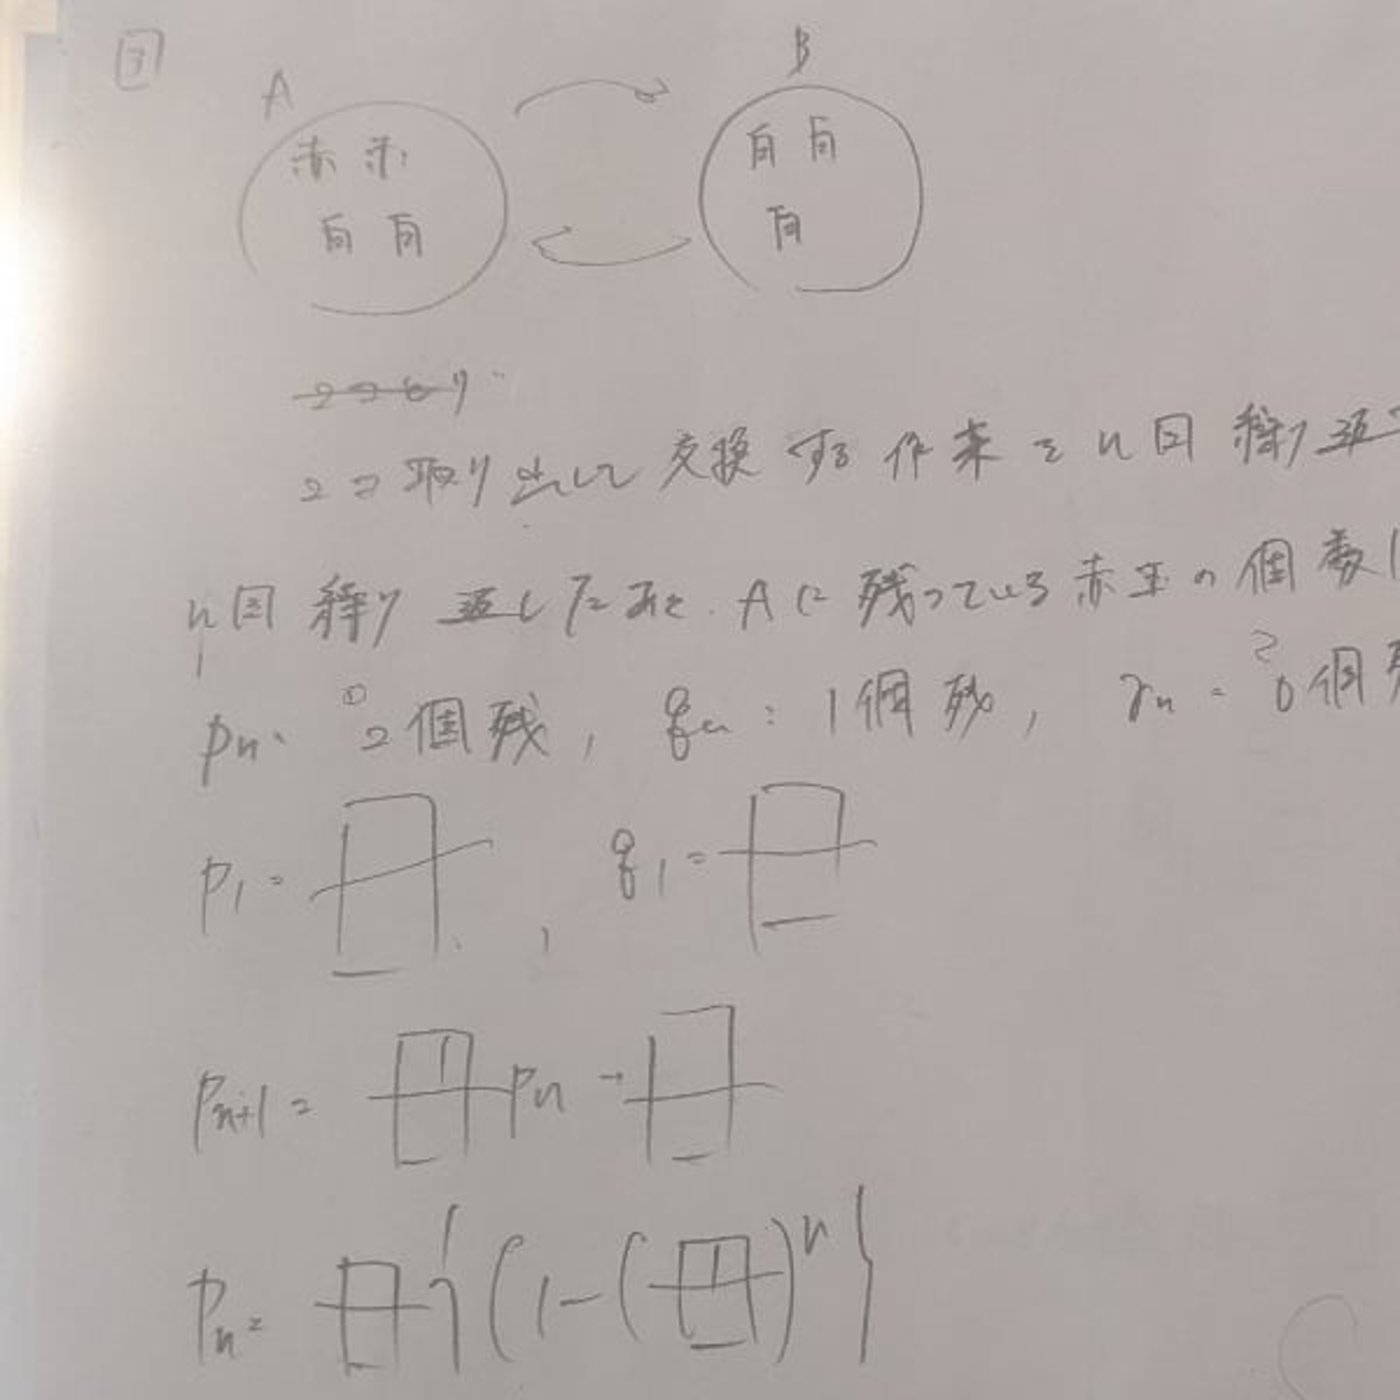 3
A B
赤 赤 白 白
白 白 白
2コとり
2コ取り出して交換する作業をn回繰り返
n回繰り返したあと、Aに残っている赤玉の個数
pn: 2個残, qn: 1個残, rn: 0個残
p1 = , q1 =
pn+1 = pn +
pn = {(1-( )^n}